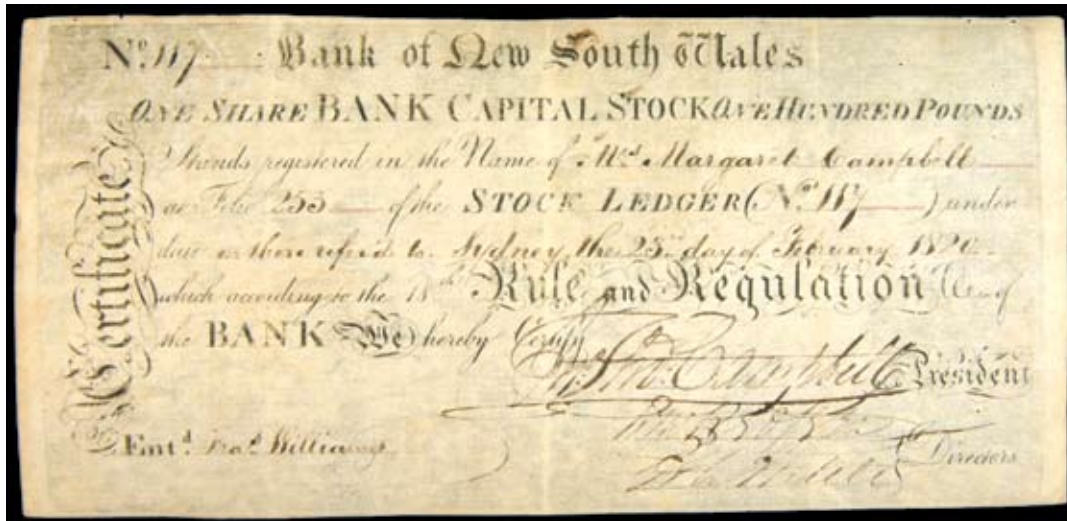 No. 117 Bank of New South Wales
ONE SHARE BANK CAPITAL STOCK ONE HUNDRED POUNDS
Stands registered in the Name of Mrs. Margaret Campbell
as Folio 253 of the STOCK LEDGER (No. 117) under
date as there referd to. Sydney, the 25th day of February 1820.
which according to the 18th Rule and Regulation
the BANK We hereby Certify
Certificate
Campbell President
Entd. Fras. Williams
Directors